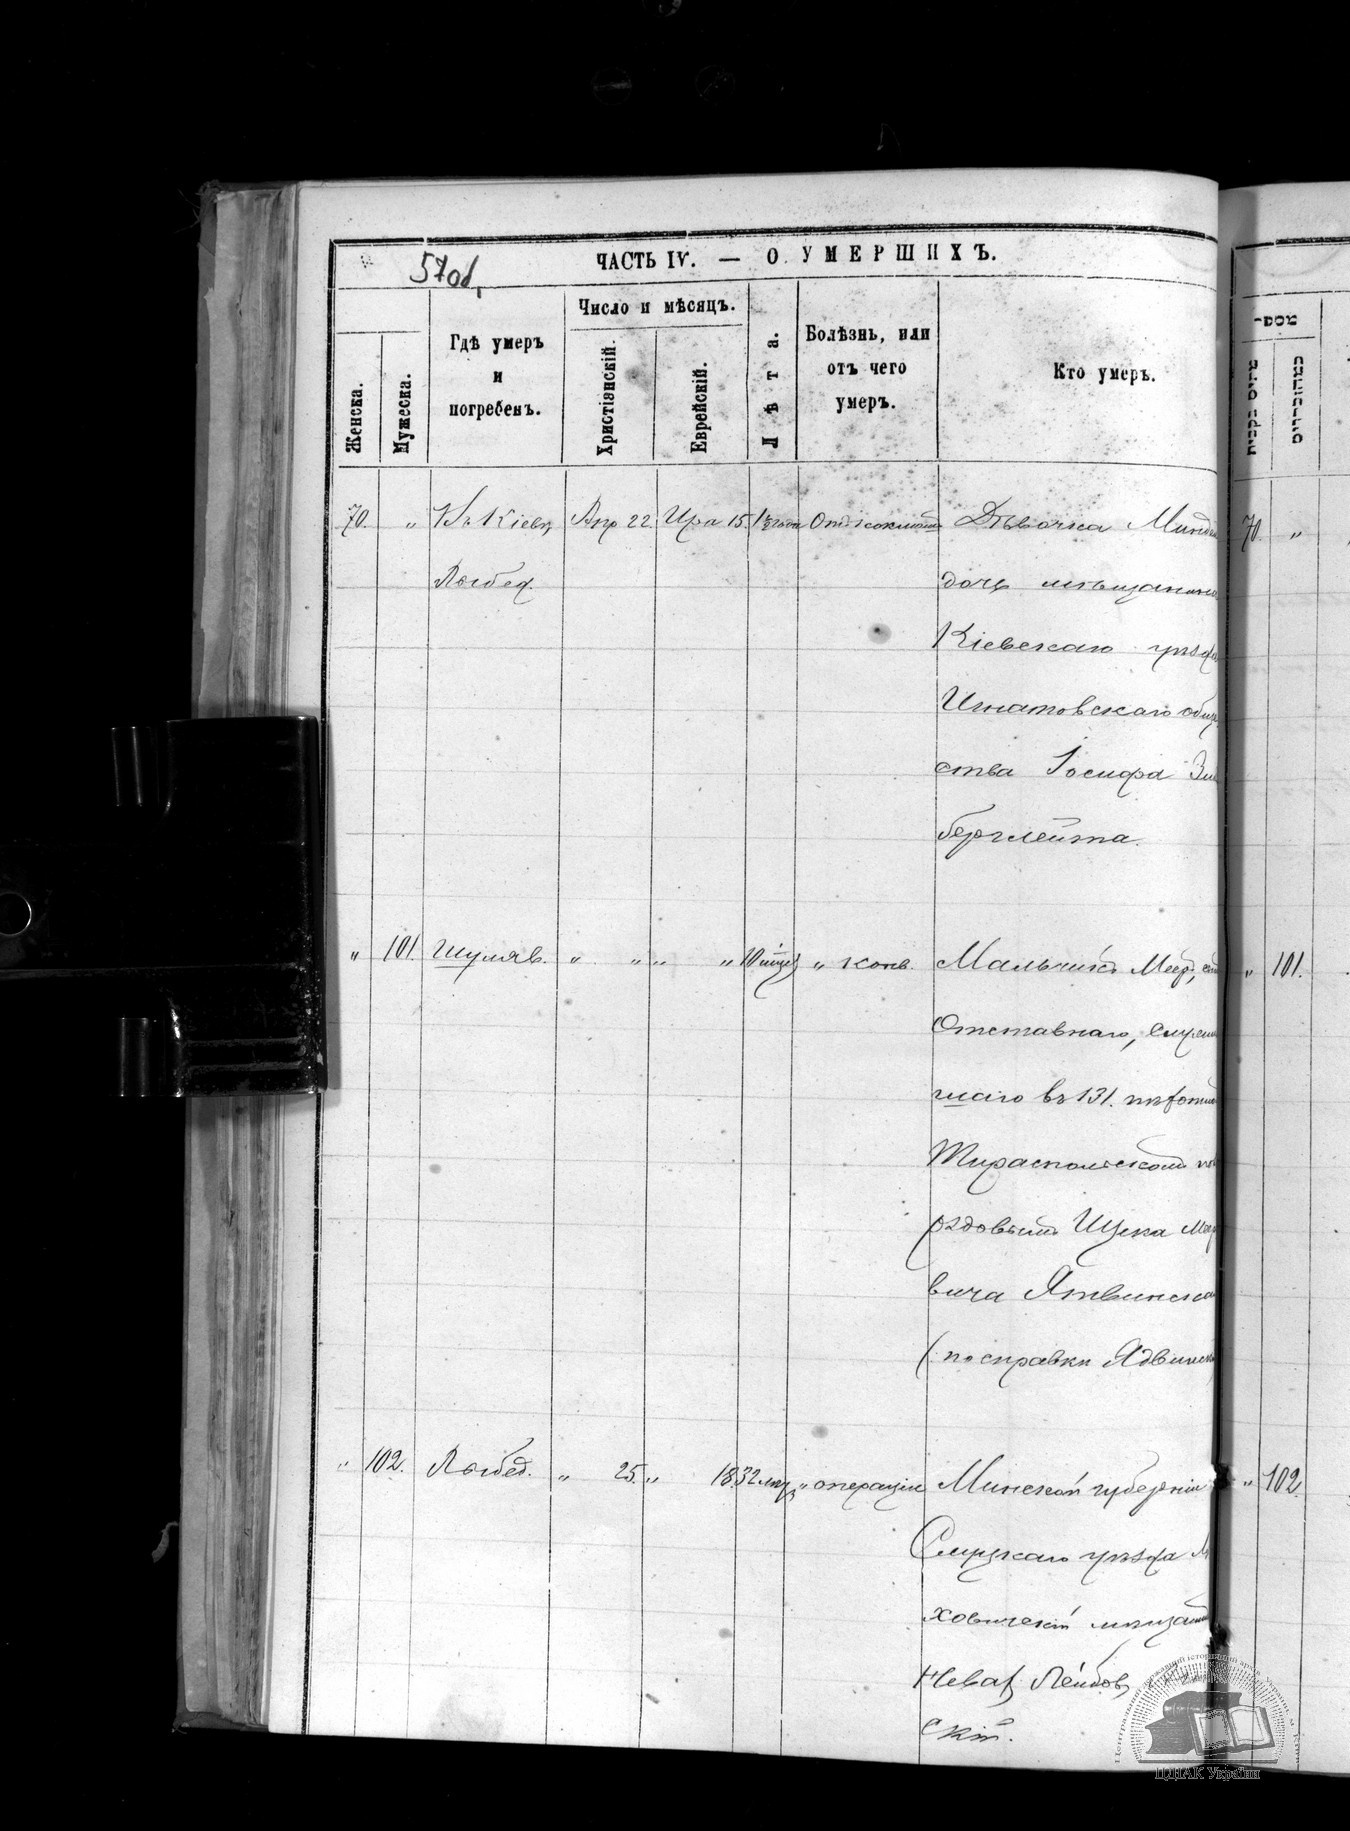 57 об.
ЧАСТЬ IV. — О УМЕРШИХЪ.
Женска.
Мужеска.
Гдѣ умеръ
и
погребенъ.
Число и мѣсяцъ.
Христіянскій.
Еврейскій.
Лѣта.
Болѣзнь, или
отъ чего
умеръ.
Кто умеръ.
מספר
70. „ Въ Кіевѣ Апр 22. Ира 15. 1½ года Отъ коклюша Дѣвочка
Лыбед. дочь мѣщанина
Кіевскаго уѣзда
Игнатовскаго обще
ства Іосифа
берглейта.
70. „
„ 101. Шуляв. „ „ „ „ 10 мѣсяц „ конв. Мальчикъ Меер,
Отставнаго, Служив
шаго въ 131. пѣхотном
Тираспольскомъ
рядовымъ Ицка
вича Ятвинска
(по справки Ядвинск
„ 101.
„ 102. Лыбед. „ 25. „ 18. 32 лѣт „ операціи Минской губерніи
Слуцкаго уѣзда
ховичскій мѣщан
Лейбов
скій.
„ 102.
ЦДІАК України